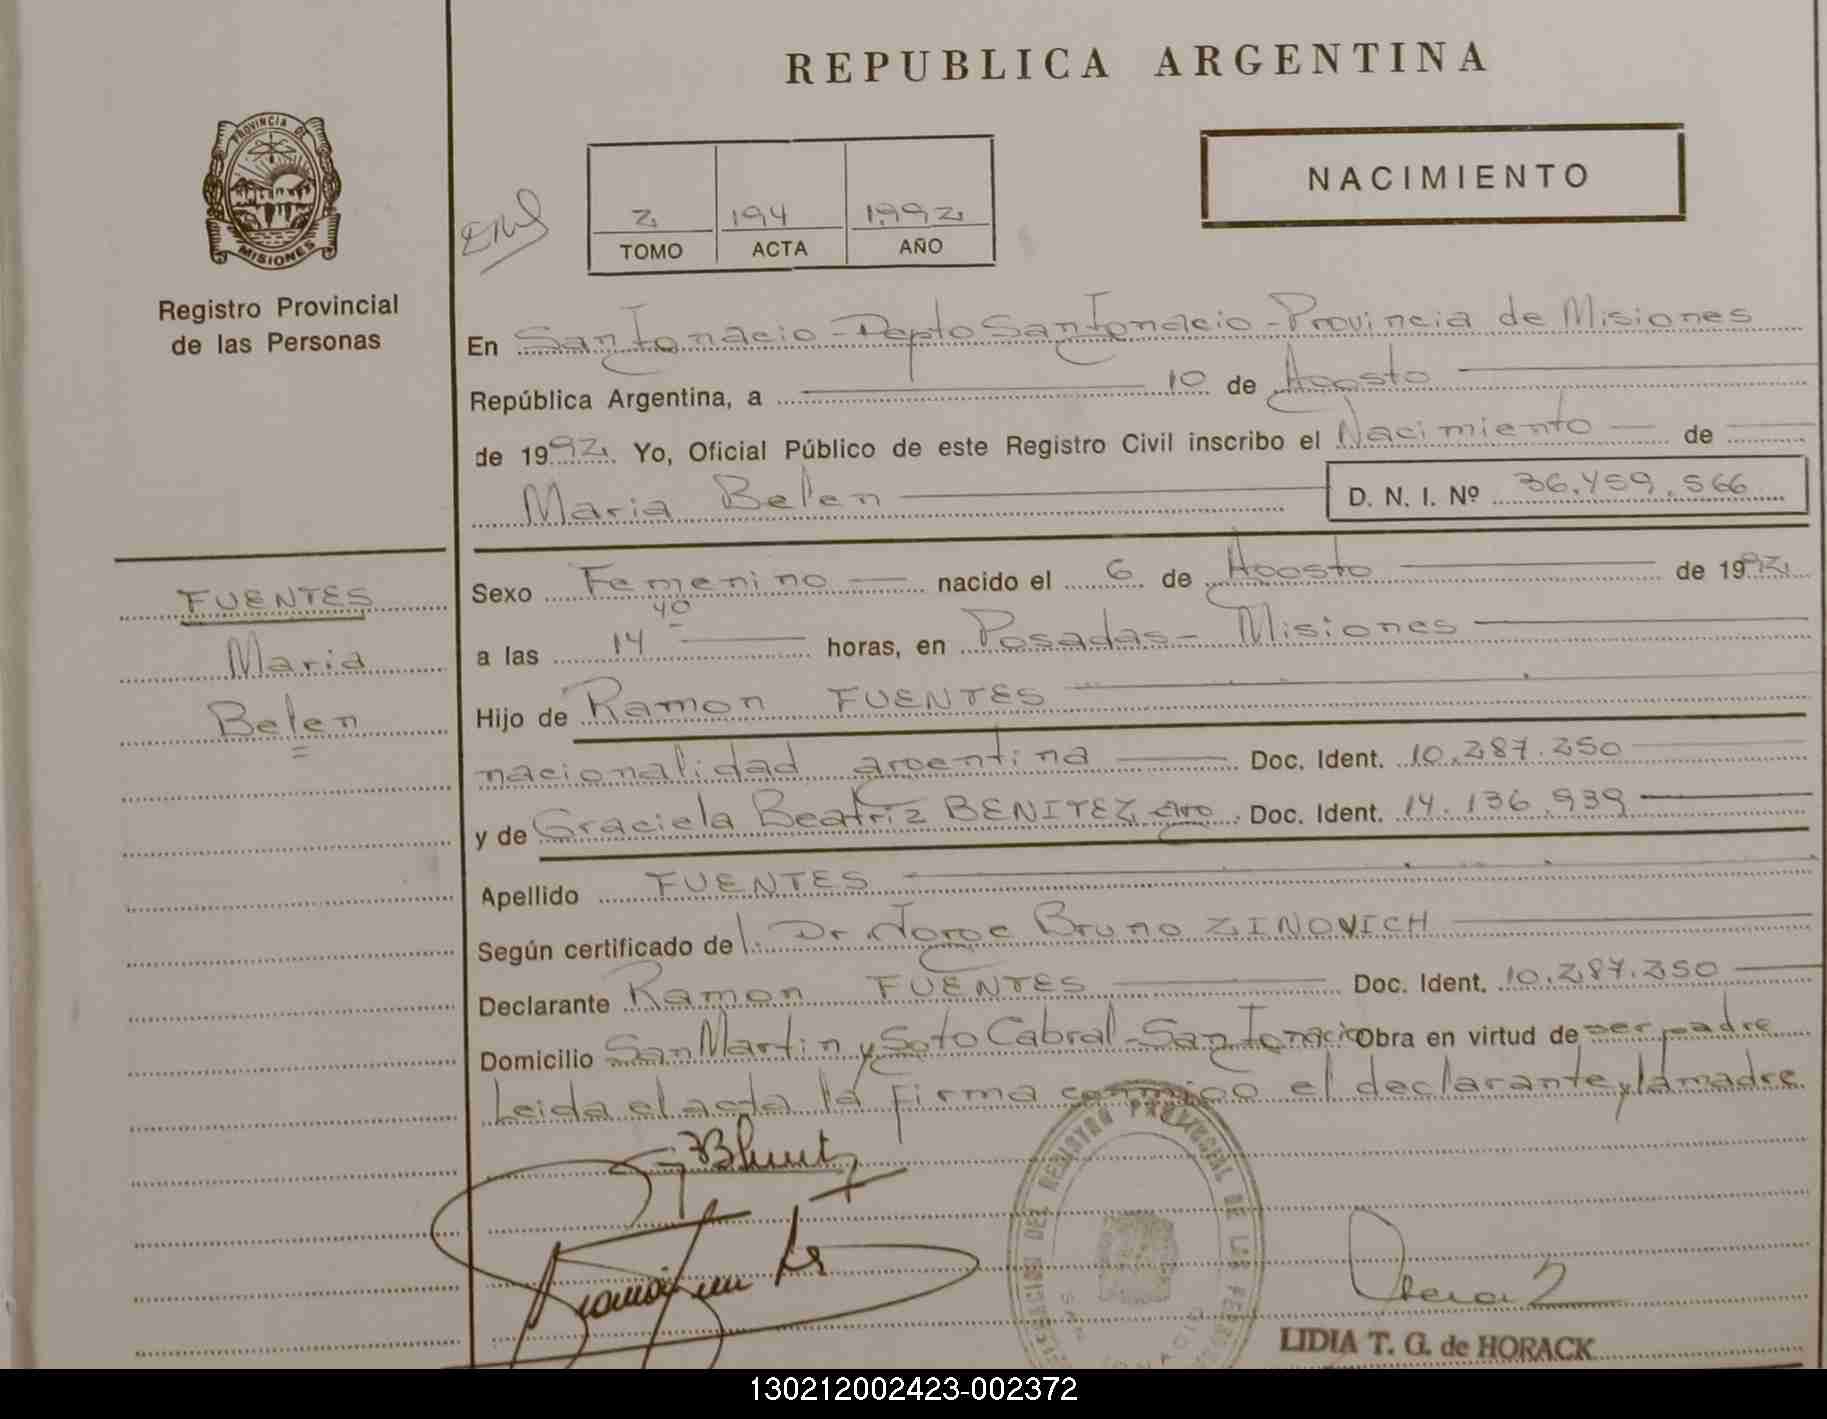 REPUBLICA ARGENTINA
PROVINCIA DE
MISIONES
Registro Provincial
de las Personas
NACIMIENTO
2 194 1992
TOMO ACTA AÑO
En San Ignacio - Depto San Ignacio - Provincia de Misiones
República Argentina, a 10 de Agosto
de 1992 Yo, Oficial Público de este Registro Civil inscribo el Nacimiento de
Maria Belen D. N. I. Nº 36.459.566
FUENTES
Maria
Belen
Sexo Femenino nacido el 6 de Agosto de 1992
a las 14 40 horas, en Posadas - Misiones
Hijo de Ramon FUENTES
nacionalidad argentina Doc. Ident. 10.287.250
y de Graciela Beatriz BENITEZ, Doc. Ident. 14.136.939
Apellido FUENTES
Según certificado del: Dr Jorge Bruno ZINOVICH
Declarante Ramon FUENTES Doc. Ident. 10.287.250
Domicilio San Martin y Soto Cabral - San Ignacio Obra en virtud de ser padre
Leida el acta la firma conmigo el declarante y la madre
REGISTRO PROVINCIAL DE LAS PERSONAS
LIDIA T. G. de HORACK
130212002423-002372